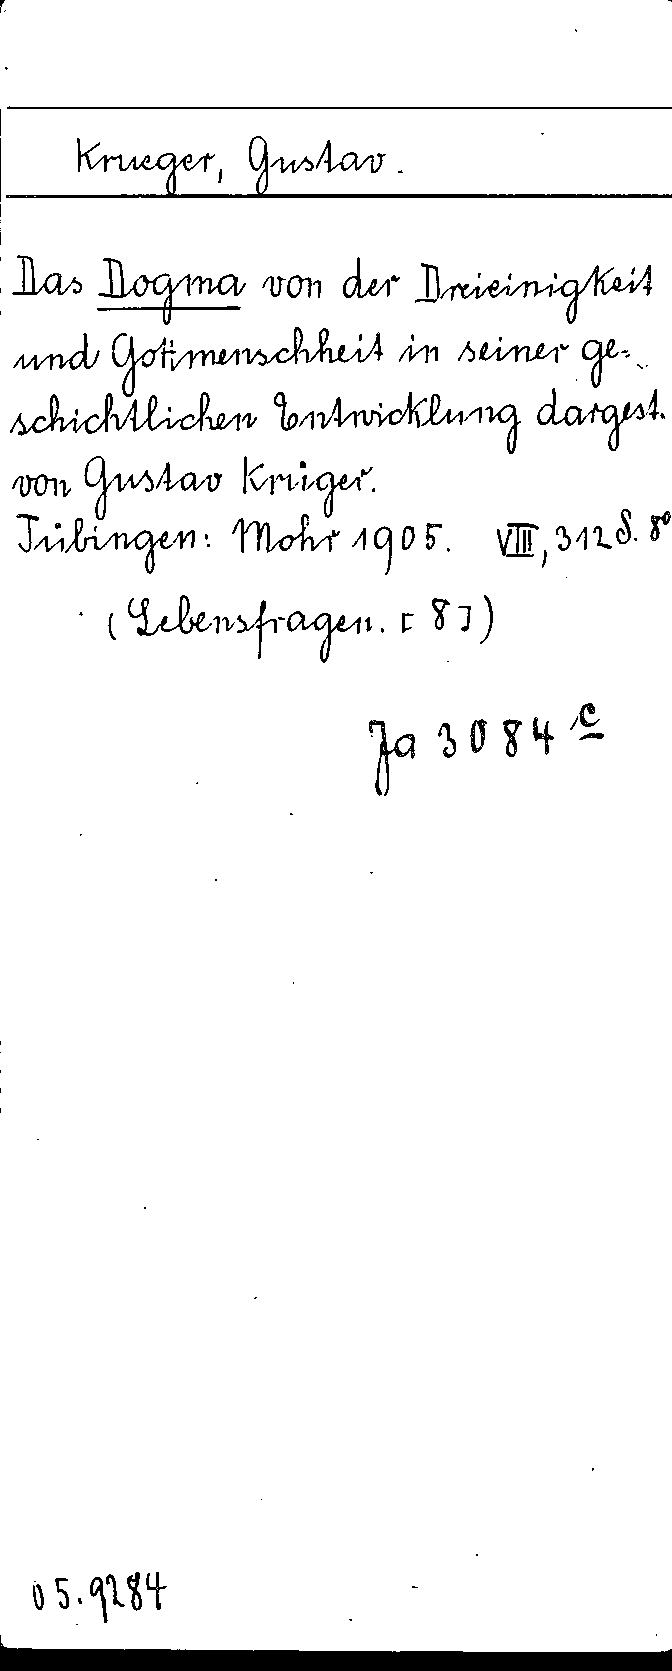 Krueger, Gustav.
Das Dogma von der Dreieinigkeit
und Gottmenschheit in seiner ge-
schichtlichen Entwicklung dargest.
von Gustav Krüger.
Tübingen: Mohr 1905. VIII, 312 S. 8°
(Lebensfragen. [8])
Ja 3084 c
05.9284